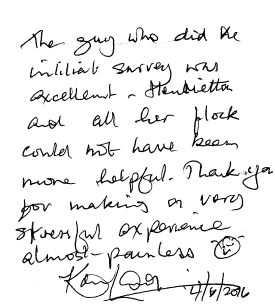 The guy who did the
initial survey was
excellent - Henrietta
and all her flock
could not have been
more helpful. Thank you
for making a very
stressful experience
almost painless
4/6/2016